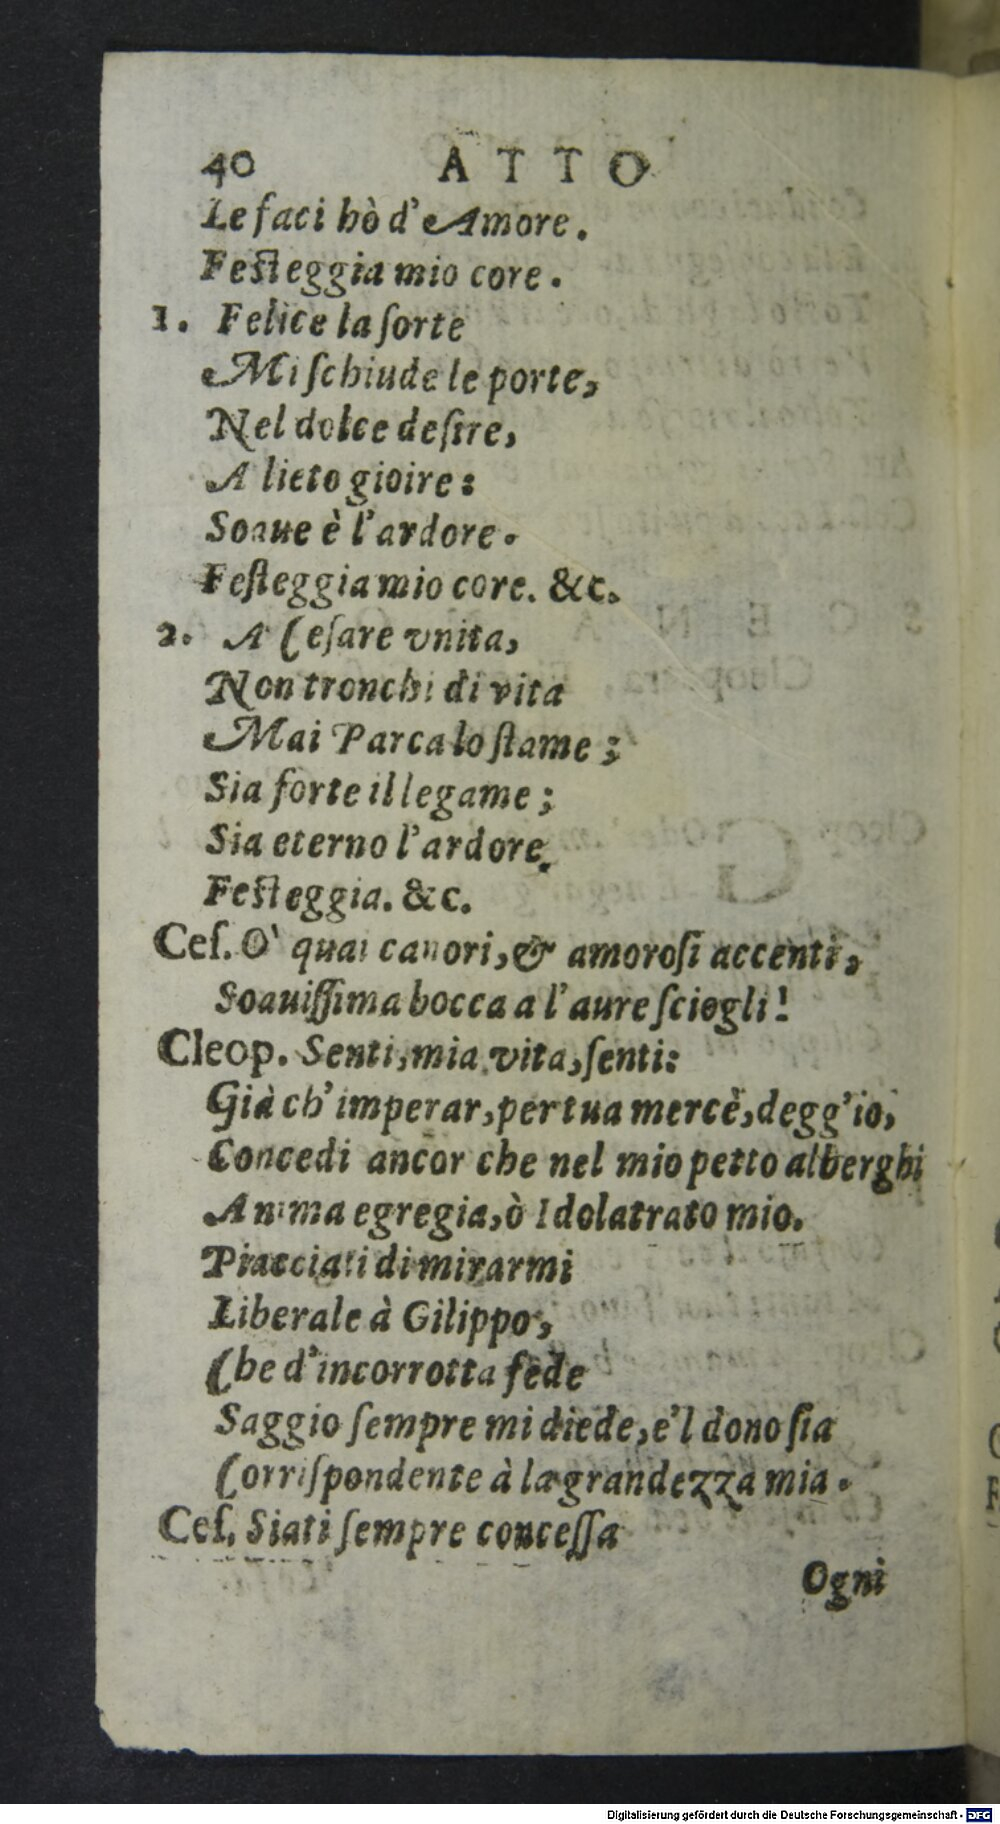 40 ATTO
Le faci hò d'Amore.
Feſteggia mio core.
1. Felice la ſorte
Mi ſchiude le porte,
Nel dolce deſire,
A lieto gioire:
Soaue è l'ardore.
Feſteggia mio core. &c.
2. A Ceſare vnita,
Non tronchi di vita
Mai Parca lo ſtame;
Sia forte il legame;
Sia eterno l'ardore.
Feſteggia. &c.
Ceſ. O' quai canori, & amoroſi accenti,
Soauiſſima bocca a l'aure ſciogli!
Cleop. Senti, mia vita, ſenti:
Già ch'imperar, per tua mercè, degg'io,
Concedi ancor che nel mio petto alberghi
Anima egregia, ò Idolatrato mio.
Piacciati di mirarmi
Liberale à Gilippo,
Che d'incorrotta fede
Saggio ſempre mi diede, e'l dono ſia
Corriſpondente à la grandezza mia.
Ceſ. Siati ſempre conceſſa
Ogni
Digitalisierung gefördert durch die Deutsche Forschungsgemeinschaft - DFG